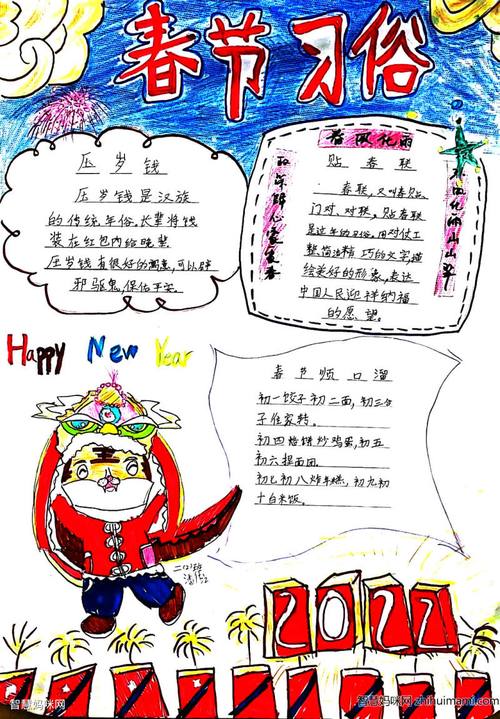 春节习俗
压岁钱
压岁钱是汉族
的传统年俗。长辈将钱
装在红包内给晚辈
压岁钱有很好的寓意,可以辟
邪驱鬼,保佑平安。
春风化雨
贴春联
春联,又叫春贴、
门对、对联。贴春联
是过年的习俗。用对仗工
整简洁精巧的文字描
绘美好的形象,表达
中国人民迎祥纳福
的愿望。
Happy New Year
春节顺口溜
初一饺子初二面,初三合
子往家转。
初四烙饼炒鸡蛋,初五
初六捏面团。
初七初八炸年糕,初九初
十白米饭。
2022
智慧妈咪网
智慧妈咪网 zhihuimami.com